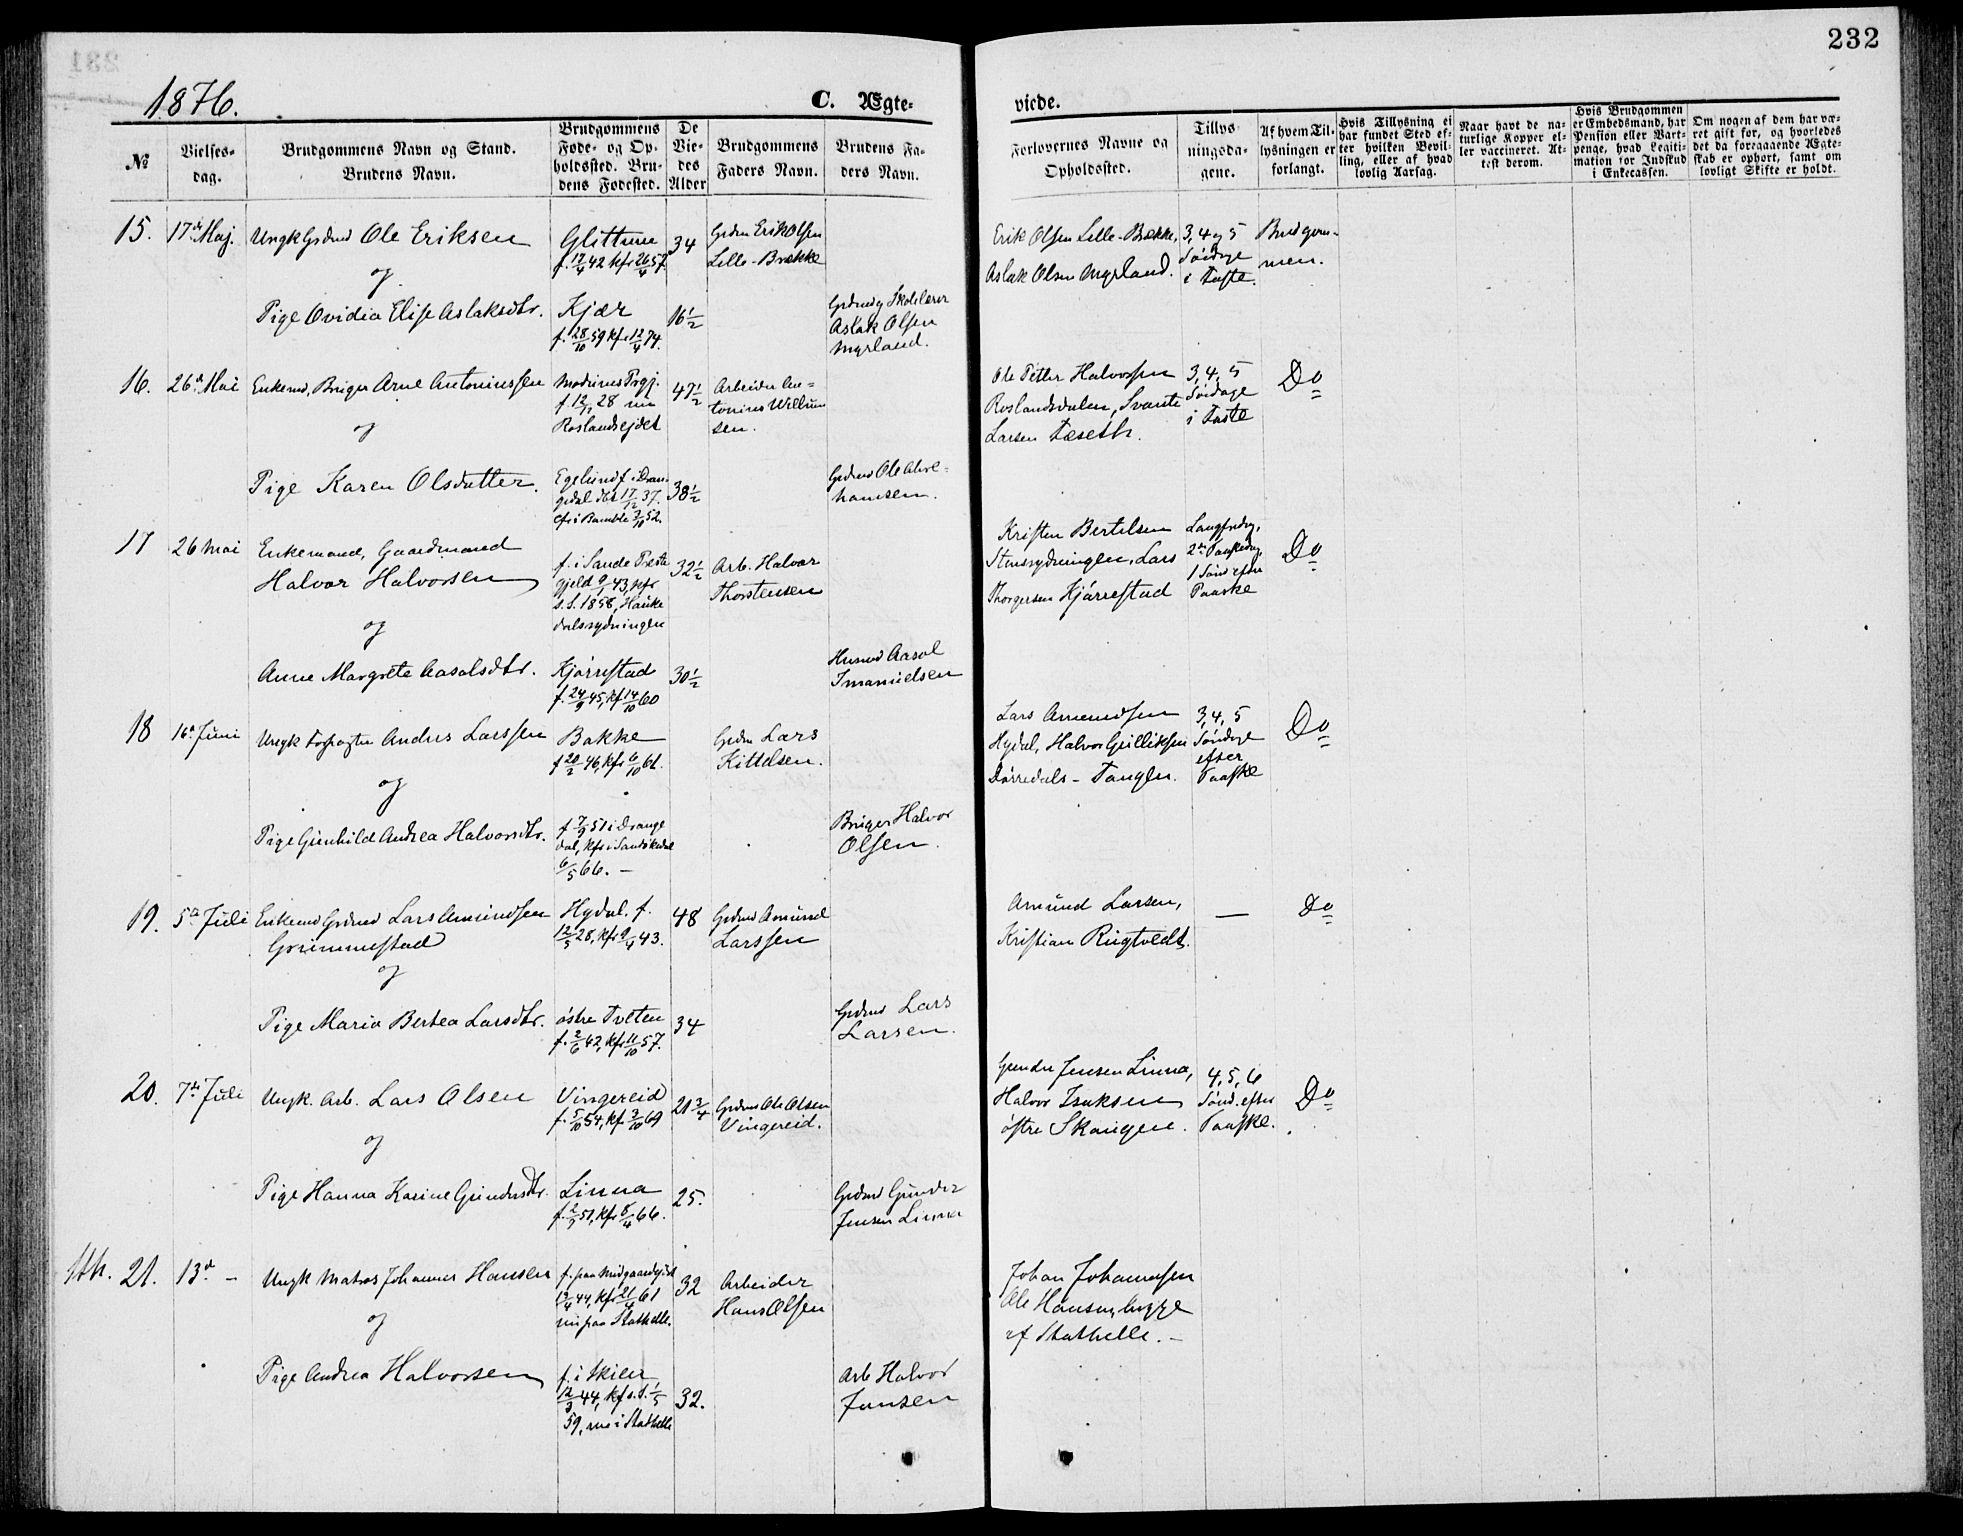 232
1876.
C. Ægte-
viede.
№
Vielses-
dag.
Brudgommens Navn og Stand.
Brudens Navn.
Brudgommens
Føde- og Op-
holdssted. Bru-
dens Fødested.
De
Vie-
des
Alder
Brudgommens
Faders Navn.
Brudens Fa-
ders Navn.
Forlovernes Navne og
Opholdssted.
Tillys-
ningsda-
gene.
Af hvem Til-
lysningen er
forlangt.
Hvis Tillysning ei
har fundet Sted ef-
ter hvilken Bevil-
ling, eller af hvad
lovlig Aarsag.
Naar havt de na-
turlige Kopper el-
ler vaccineret. At-
test derom.
Hvis Brudgommen
er Embedsmand, har
Pension eller Vart-
penge, hvad Legiti-
mation for Indskud
i Enkecassen.
Om nogen af dem har væ-
ret gift før, og hvorledes
det da foregaaende Ægte-
skab er ophørt, samt om
lovligt Skifte er holdt.
15.
17de Maj.
Ungk Grdmd Ole Eriksen
og
Pige Ovidia Elise Aslaksdtr.
Glittum
f. 17/4 42 kfr 26/4 57.
Kjær
f. 28/10 59 kfr 12/4 74.
34
16½
Grdm Erik Olsen
Lille-Brække
Grdmd og Skolelærer
Aslak Olsen
Myrland.
Erik Olsen Lille-Brække,
Aslak Olsen Myrland.
3, 4 og 5
Søndage
i Faste.
Brudgom-
men.
16.
26de Mai
Enkemd, Bruger Arne Antoniussen
og
Pige Karen Olsdatter.
f. 12/ 28 nu
Roslandsejdet
Egelund f i Dran-
gedal dbt 17/12 37.
cfr i Bamble 3/10 52.
47½
38½
Arbeider An=
tonius Willum
sen.
Grdmd Ole Abra=
hamsen.
Ole Petter Halvorsen
Roslandsdalen, Svante
Larsen Tæseth.
3, 4, 5
Søndage
i Faste
Do
17
26 Mai
Enkemand, Gaardmand
Halvor Halvorsen
og
Anne Margrete Aasolsdtr.
f. i Sande Præste
gjeld 9/1 43, kfr
s. S. 1858, Hauke
dalsrydningen
Kjørrestad
f. 24/9 45, kf 14/10 60
32½
30½
Arb. Halvor
Thorstensen
Husmd Aasol
Imanuelsen
Kristen Bertelsen
Stensrydningen, Lars
Thorgersen Kjørrestad
Langfredag,
2den Paaskedag,
1 Sønd efter
Paaske
Do
18
16de Juni
Ungk Forpagter Anders Larssen
og
Pige Gunhild Andrea Halvorsdtr.
Bakke
f 20/2 46, kfr 6/10 61.
f 7/9 51 i Drange
dal, kfr i Sandøkedal
6/5 66. —
Grdm Lars
Kittelsen.
Bruger Halvor
Olsen.
Lars Amundsen
Hydal, Halvor Gulliksen
Dørredals-Tangen.
3, 4, 5
Søndage
efter
Paaske
Do
19.
5te Juli
Enkemd Grdmd Lars Amundsen
Grummestad
og
Pige Maria Bertea Larsdtr.
Hydal. f.
12/5 28, kfr 9/4 43.
østre Tveten
f. 2/6 42, kfr 11/10 57.
48
34
Grdmd Amund
Larssen
Grdmd Lars
Larsen.
Amund Larsen,
Kristian Rugtvedt.
—
Do
20.
7de Juli
Ungk. Arb. Lars Olsen
og
Pige Hanna Karine Gundersdtr.
Vingereid
f. 5/10 54, kf 3/10 69
Linna
f. 2/ 51, kfr 8/4 66.
21¾
25.
Grdmd Ole Olsen
Vingereid.
Grdmd Gunder
Jensen Linna
Gunder Jensen Linna,
Halvor Isaksen
østre Skougen.
4, 5, 6
Sønd. efter
Paaske.
Do
Sth. 21.
13de —
Ungk Matros Johannes Hansen
og
Pige Andrea Halvorsen
f. paa Midgaardejdet
19/4 44, kfr 21/4 61
nu paa Stathelle.
f. i Skien,
12/3 44, kf s. S. 1/5
59, nu i Stathelle
32
32.
Arbeider
Hans Olsen
Arb Halvor
Jensen
Johan Johannesen
Ole Hansen, begge
af Stathelle. —